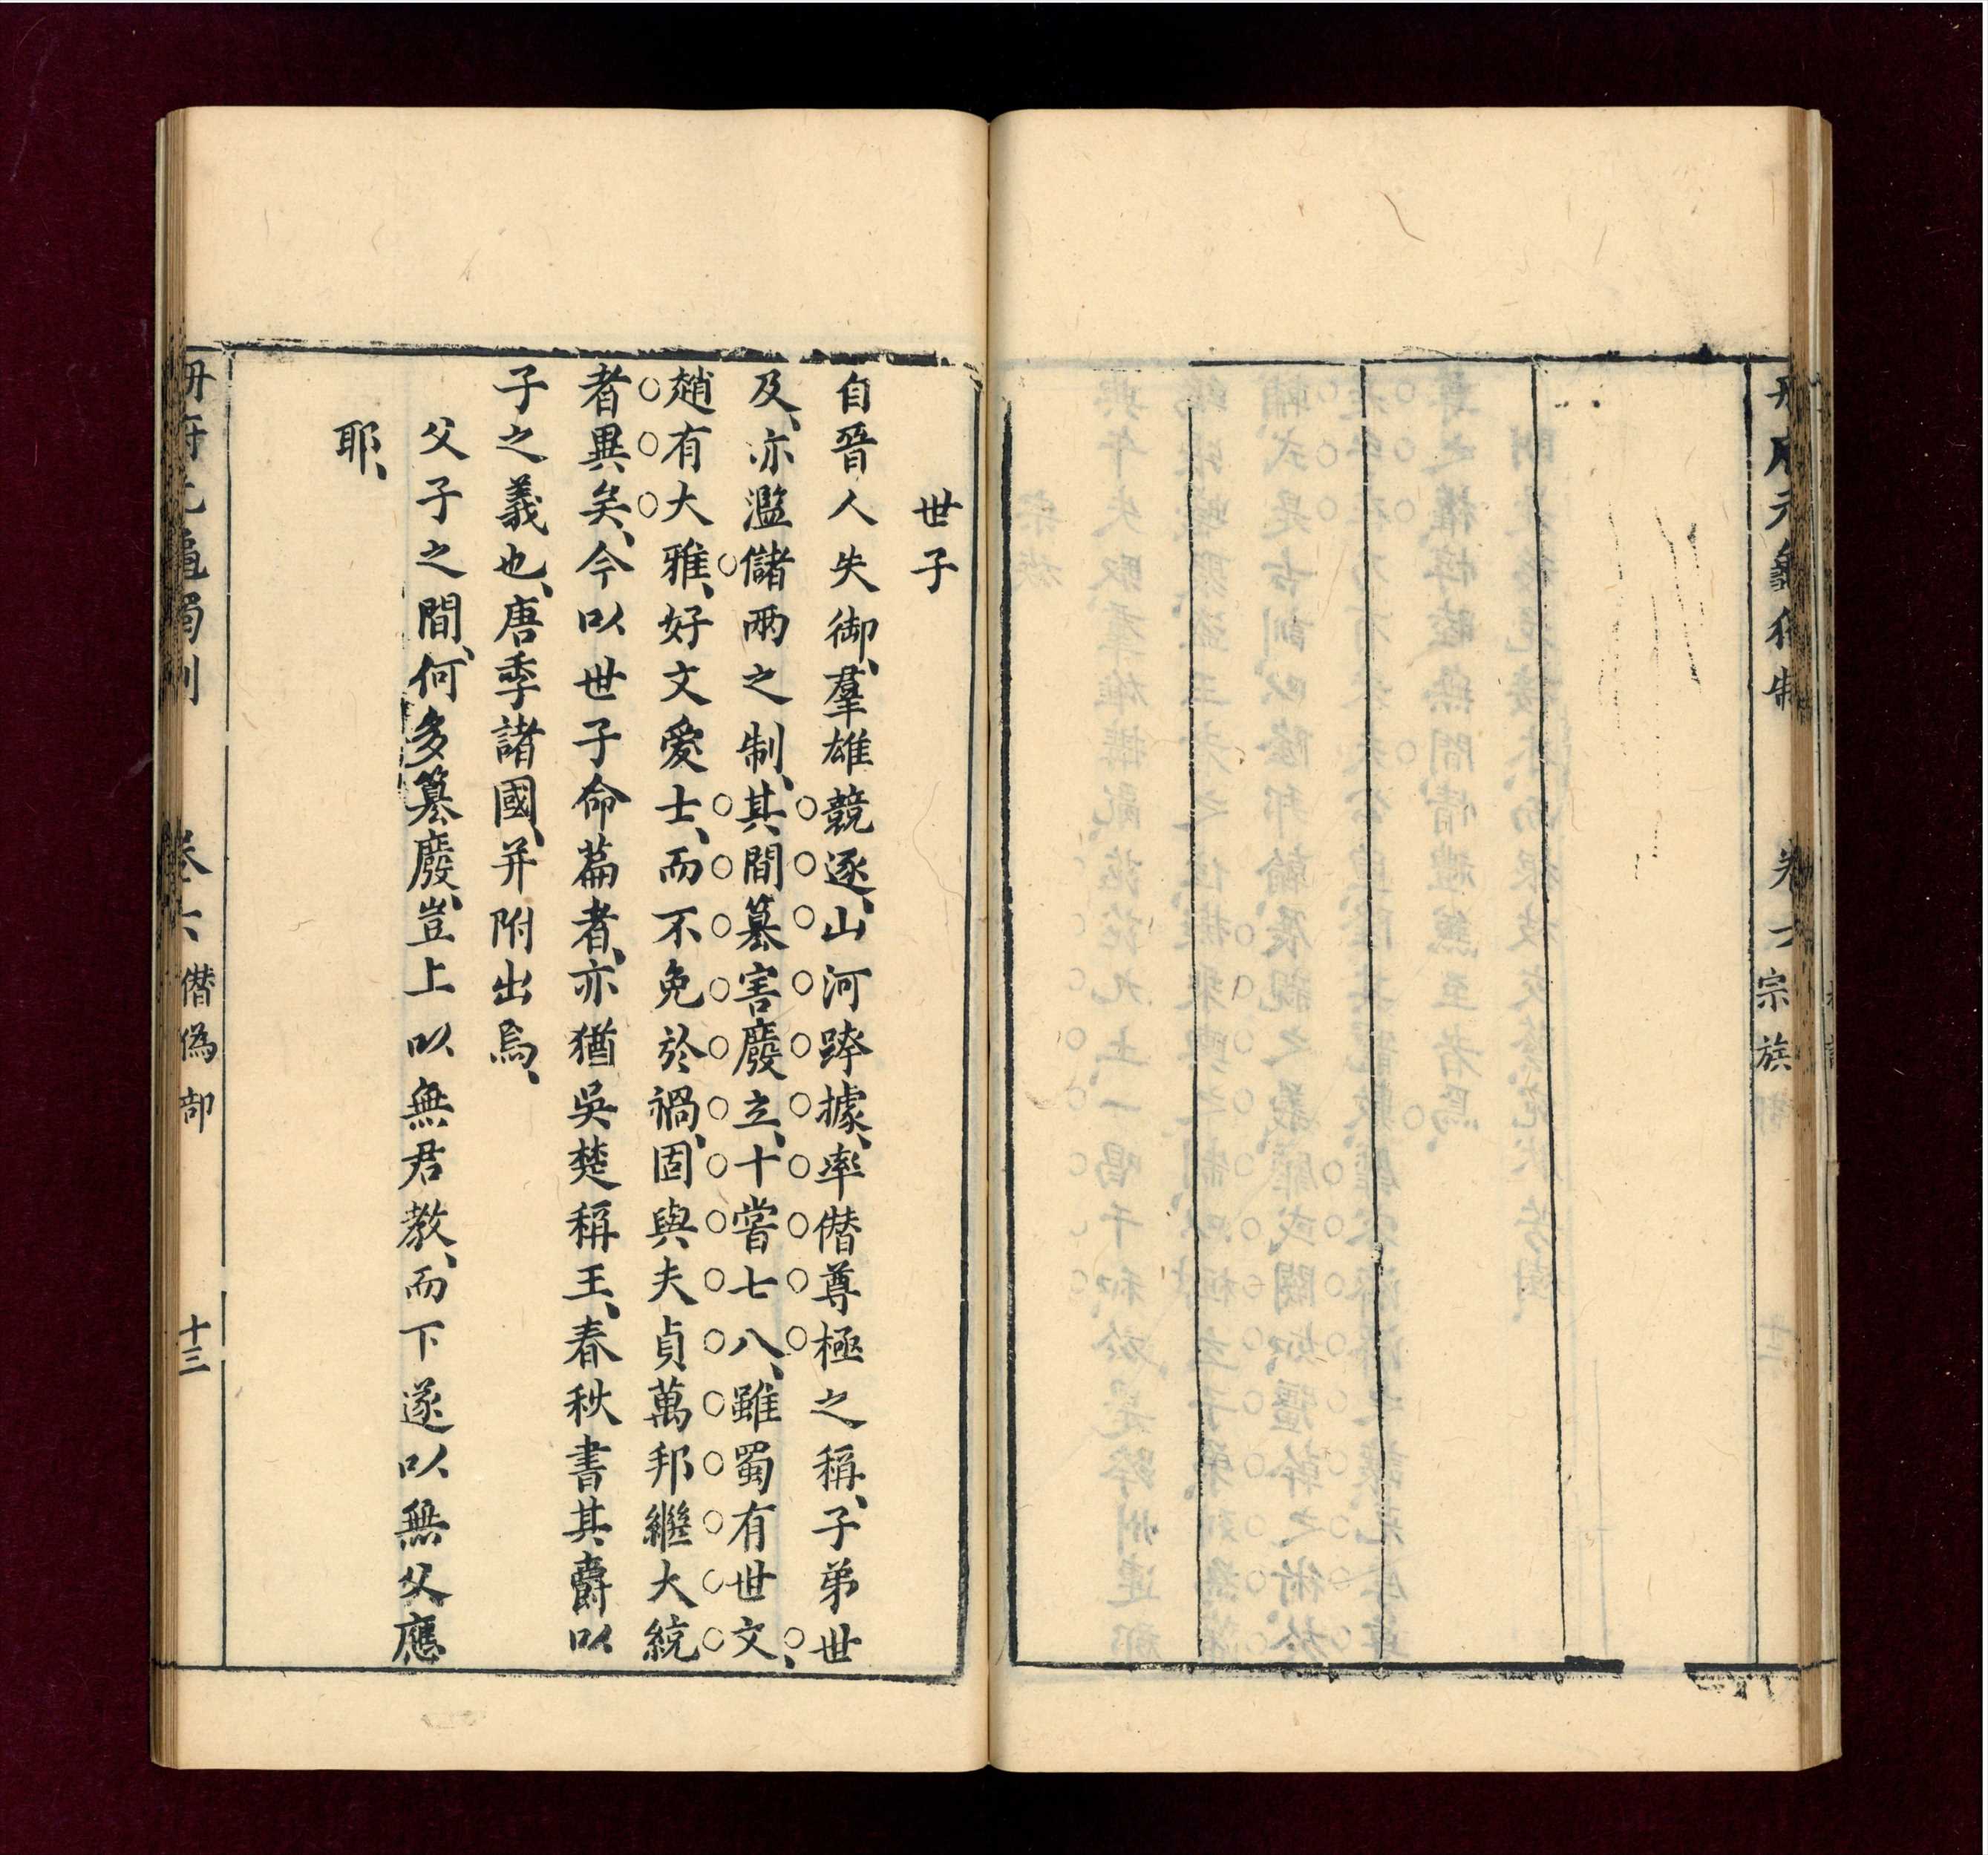 宗族
世子
自晉人失御、羣雄競逐、山河跨據、率僭尊極之稱、子弟世
及、亦濫儲兩之制、其間篡害廢立、十嘗七八、雖蜀有世文、
趙有大雅、好文愛士、而不免於禍、固與夫貞萬邦繼大統
者異矣、今以世子命篇者、亦猶吳楚稱王、春秋書其爵以
子之義也、唐季諸國、并附出焉、
父子之間、何多篡廢、豈上以無君教、而下遂以無父應
耶、
冊府元龜獨制 卷六 僭偽部 十三